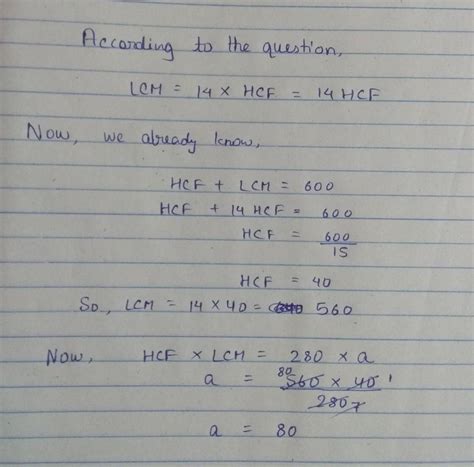 According to the question,
LCM = 14 × HCF = 14 HCF
Now, we already know,
HCF + LCM = 600
HCF + 14 HCF = 600
HCF = 600
15
HCF = 40
So, LCM = 14 × 40 = 560
Now, HCF × LCM = 280 × a
80
a = 560 × 40 1
280 7
a = 80